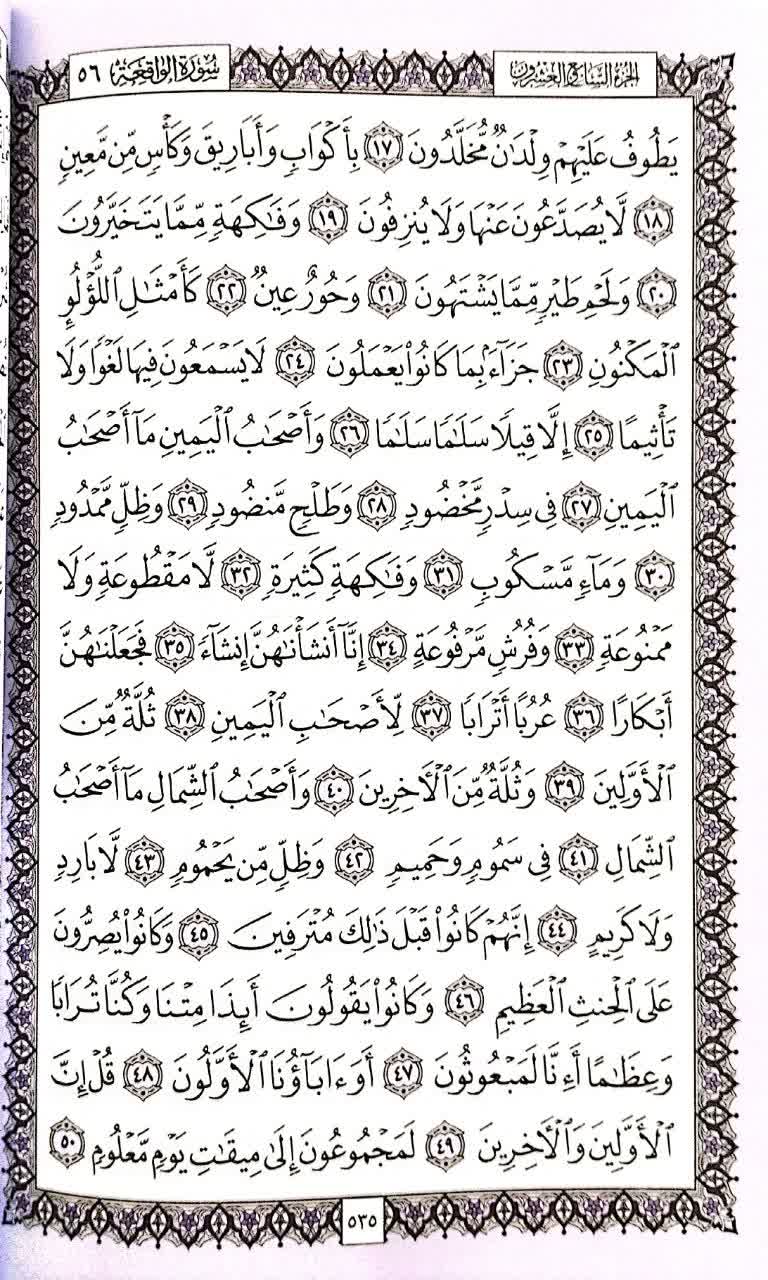 الجزء السابع والعشرون
سورة الواقعة ٥٦
يَطُوفُ عَلَيْهِمْ وِلْدَٰنٌ مُّخَلَّدُونَ ١٧ بِأَكْوَابٍ وَأَبَارِيقَ وَكَأْسٍ مِّن مَّعِينٍ
١٨ لَّا يُصَدَّعُونَ عَنْهَا وَلَا يُنزِفُونَ ١٩ وَفَٰكِهَةٍ مِّمَّا يَتَخَيَّرُونَ
٢٠ وَلَحْمِ طَيْرٍ مِّمَّا يَشْتَهُونَ ٢١ وَحُورٌ عِينٌ ٢٢ كَأَمْثَٰلِ ٱللُّؤْلُؤِ
ٱلْمَكْنُونِ ٢٣ جَزَآءًۢ بِمَا كَانُوا۟ يَعْمَلُونَ ٢٤ لَا يَسْمَعُونَ فِيهَا لَغْوًا وَلَا
تَأْثِيمًا ٢٥ إِلَّا قِيلًا سَلَٰمًا سَلَٰمًا ٢٦ وَأَصْحَٰبُ ٱلْيَمِينِ مَآ أَصْحَٰبُ
ٱلْيَمِينِ ٢٧ فِى سِدْرٍ مَّخْضُودٍ ٢٨ وَطَلْحٍ مَّنضُودٍ ٢٩ وَظِلٍّ مَّمْدُودٍ
٣٠ وَمَآءٍ مَّسْكُوبٍ ٣١ وَفَٰكِهَةٍ كَثِيرَةٍ ٣٢ لَّا مَقْطُوعَةٍ وَلَا
مَمْنُوعَةٍ ٣٣ وَفُرُشٍ مَّرْفُوعَةٍ ٣٤ إِنَّآ أَنشَأْنَٰهُنَّ إِنشَآءً ٣٥ فَجَعَلْنَٰهُنَّ
أَبْكَارًا ٣٦ عُرُبًا أَتْرَابًا ٣٧ لِّأَصْحَٰبِ ٱلْيَمِينِ ٣٨ ثُلَّةٌ مِّنَ
ٱلْأَوَّلِينَ ٣٩ وَثُلَّةٌ مِّنَ ٱلْءَاخِرِينَ ٤٠ وَأَصْحَٰبُ ٱلشِّمَالِ مَآ أَصْحَٰبُ
ٱلشِّمَالِ ٤١ فِى سَمُومٍ وَحَمِيمٍ ٤٢ وَظِلٍّ مِّن يَحْمُومٍ ٤٣ لَّا بَارِدٍ
وَلَا كَرِيمٍ ٤٤ إِنَّهُمْ كَانُوا۟ قَبْلَ ذَٰلِكَ مُتْرَفِينَ ٤٥ وَكَانُوا۟ يُصِرُّونَ
عَلَى ٱلْحِنثِ ٱلْعَظِيمِ ٤٦ وَكَانُوا۟ يَقُولُونَ أَئِذَا مِتْنَا وَكُنَّا تُرَابًا
وَعِظَٰمًا أَءِنَّا لَمَبْعُوثُونَ ٤٧ أَوَءَابَآؤُنَا ٱلْأَوَّلُونَ ٤٨ قُلْ إِنَّ
ٱلْأَوَّلِينَ وَٱلْءَاخِرِينَ ٤٩ لَمَجْمُوعُونَ إِلَىٰ مِيقَٰتِ يَوْمٍ مَّعْلُومٍ ٥٠
٥٣٥